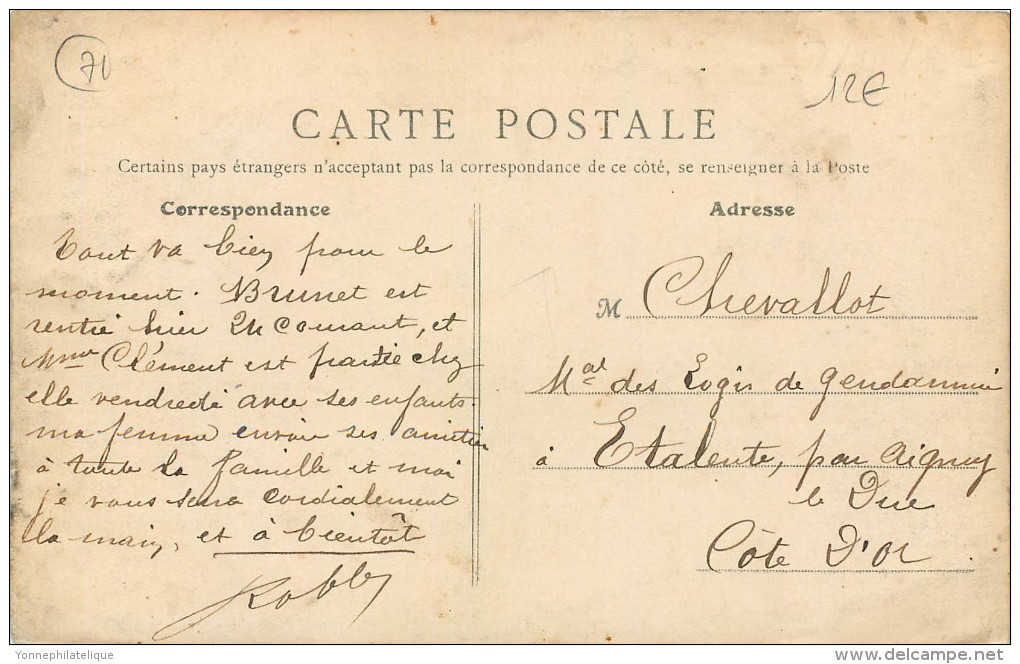 71
12€
CARTE POSTALE
Certains pays étrangers n'acceptant pas la correspondance de ce côté, se renseigner à la Poste
Correspondance
Tout va bien pour le
moment. Brunet est
rentré hier courant, et
Mme Clément est partie chez
elle vendredi avec ses enfants.
ma femme envoie ses amitiés
à toute la famille et moi
je vous serre cordialement
la main, et à bientôt
Adresse
M Chevallot
Mal des Logis de gendarmerie
à Etalente, par Aignay
le Duc
Côte D'Or
Yonnephilatelique
delcampe.net